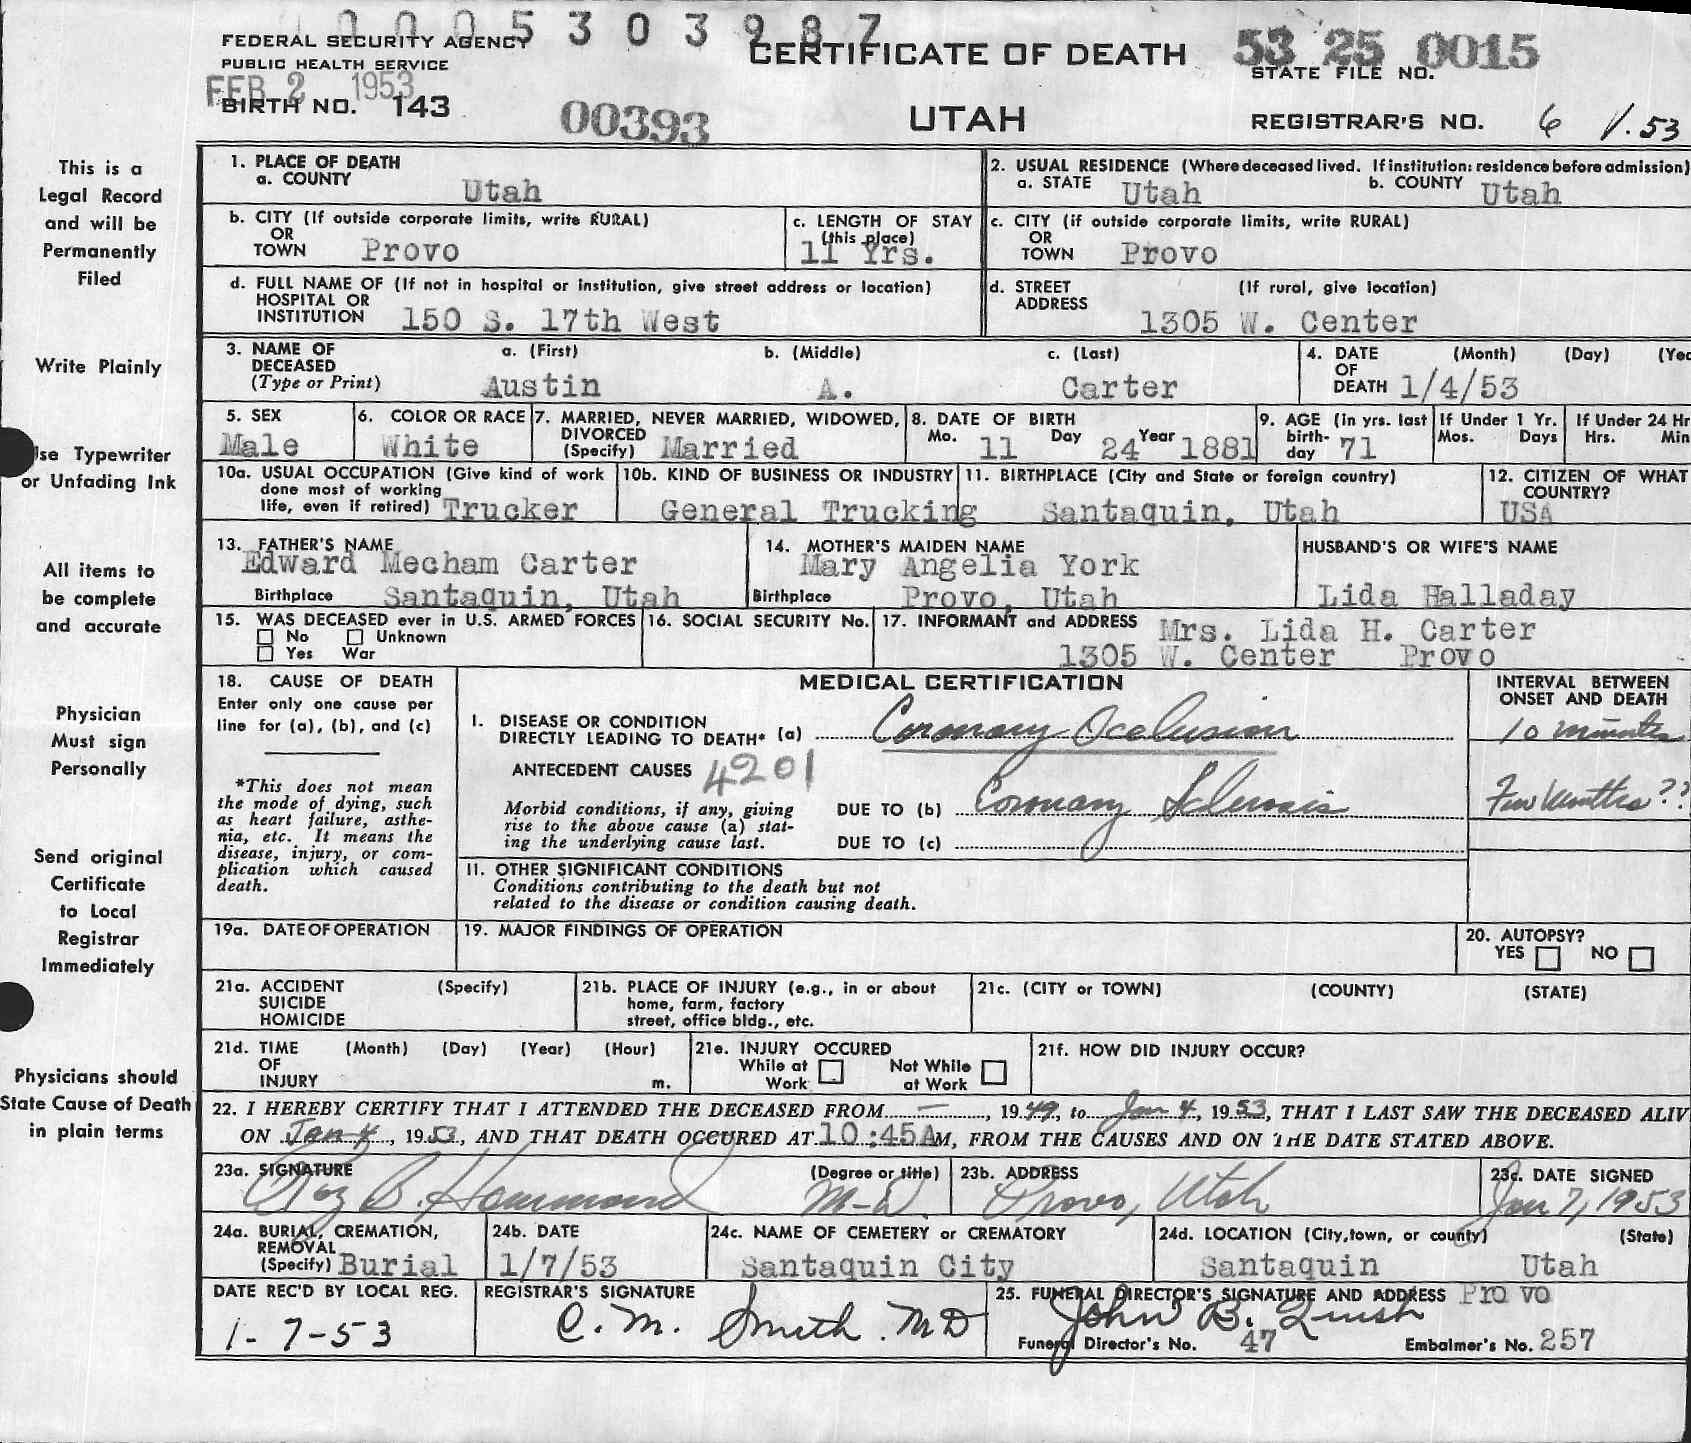 1000 5 3 0 3 9 8 7
FEDERAL SECURITY AGENCY
PUBLIC HEALTH SERVICE
FEB 2 1953
BIRTH NO. 143
00393
CERTIFICATE OF DEATH
UTAH
53 25 0015
STATE FILE NO.
REGISTRAR'S NO. 6 1/.53
This is a
Legal Record
and will be
Permanently
Filed
Write Plainly
Use Typewriter
or Unfading Ink
All items to
be complete
and accurate
Physician
Must sign
Personally
Send original
Certificate
to Local
Registrar
Immediately
Physicians should
State Cause of Death
in plain terms
1. PLACE OF DEATH
a. COUNTY Utah
2. USUAL RESIDENCE (Where deceased lived. If institution: residence before admission)
a. STATE Utah b. COUNTY Utah
b. CITY (If outside corporate limits, write RURAL)
OR
TOWN Provo
c. LENGTH OF STAY
(this place)
11 Yrs.
c. CITY (if outside corporate limits, write RURAL)
OR
TOWN Provo
d. FULL NAME OF (If not in hospital or institution, give street address or location)
HOSPITAL OR
INSTITUTION 150 S. 17th West
d. STREET (If rural, give location)
ADDRESS
1305 W. Center
3. NAME OF a. (First) b. (Middle) c. (Last)
DECEASED
(Type or Print) Austin A. Carter
4. DATE (Month) (Day) (Yea
OF
DEATH 1/4/53
5. SEX
Male
6. COLOR OR RACE
White
7. MARRIED, NEVER MARRIED, WIDOWED,
DIVORCED
(Specify) Married
8. DATE OF BIRTH
Mo. 11 Day 24 Year 1881
9. AGE (In yrs. last
birth-
day 71
If Under 1 Yr.
Mos. Days
If Under 24 Hr
Hrs. Min
10a. USUAL OCCUPATION (Give kind of work
done most of working
life, even if retired) Trucker
10b. KIND OF BUSINESS OR INDUSTRY
General Trucking
11. BIRTHPLACE (City and State or foreign country)
Santaquin, Utah
12. CITIZEN OF WHAT
COUNTRY?
USA
13. FATHER'S NAME
Edward Mecham Carter
Birthplace Santaquin, Utah
14. MOTHER'S MAIDEN NAME
Mary Angelia York
Birthplace Provo, Utah
HUSBAND'S OR WIFE'S NAME
Lida Halladay
15. WAS DECEASED ever in U.S. ARMED FORCES
No Unknown
Yes War
16. SOCIAL SECURITY No.
17. INFORMANT and ADDRESS Mrs. Lida H. Carter
1305 W. Center Provo
18. CAUSE OF DEATH
Enter only one cause per
line for (a), (b), and (c)
*This does not mean
the mode of dying, such
as heart failure, asthe-
nia, etc. It means the
disease, injury, or com-
plication which caused
death.
MEDICAL CERTIFICATION
INTERVAL BETWEEN
ONSET AND DEATH
I. DISEASE OR CONDITION
DIRECTLY LEADING TO DEATH* (a) Coronary Occlusion 10 minutes
ANTECEDENT CAUSES 4201
Morbid conditions, if any, giving
rise to the above cause (a) stat-
ing the underlying cause last.
DUE TO (b) Coronary Sclerosis Few Months??
DUE TO (c)
II. OTHER SIGNIFICANT CONDITIONS
Conditions contributing to the death but not
related to the disease or condition causing death.
19a. DATE OF OPERATION
19. MAJOR FINDINGS OF OPERATION
20. AUTOPSY?
YES NO
21a. ACCIDENT (Specify)
SUICIDE
HOMICIDE
21b. PLACE OF INJURY (e.g., in or about
home, farm, factory
street, office bldg., etc.
21c. (CITY or TOWN) (COUNTY) (STATE)
21d. TIME (Month) (Day) (Year) (Hour)
OF
INJURY m.
21e. INJURY OCCURED
While at Work
Not While at Work
21f. HOW DID INJURY OCCUR?
22. I HEREBY CERTIFY THAT I ATTENDED THE DECEASED FROM —, 1949, to Jan 4, 1953, THAT I LAST SAW THE DECEASED ALIV
ON Jan 4, 1953, AND THAT DEATH OCCURED AT 10:45AM, FROM THE CAUSES AND ON THE DATE STATED ABOVE.
23a. SIGNATURE (Degree or title)
Roy B. Hammond M-D.
23b. ADDRESS
Provo, Utah
23c. DATE SIGNED
Jan 7, 1953
24a. BURIAL, CREMATION,
REMOVAL
(Specify) Burial
24b. DATE
1/7/53
24c. NAME OF CEMETERY or CREMATORY
Santaquin City
24d. LOCATION (City,town, or county) (State)
Santaquin Utah
DATE REC'D BY LOCAL REG.
1-7-53
REGISTRAR'S SIGNATURE
C. M. Smith. MD
25. FUNERAL DIRECTOR'S SIGNATURE AND ADDRESS Provo
John B.
Funeral Director's No. 47 Embalmer's No. 257